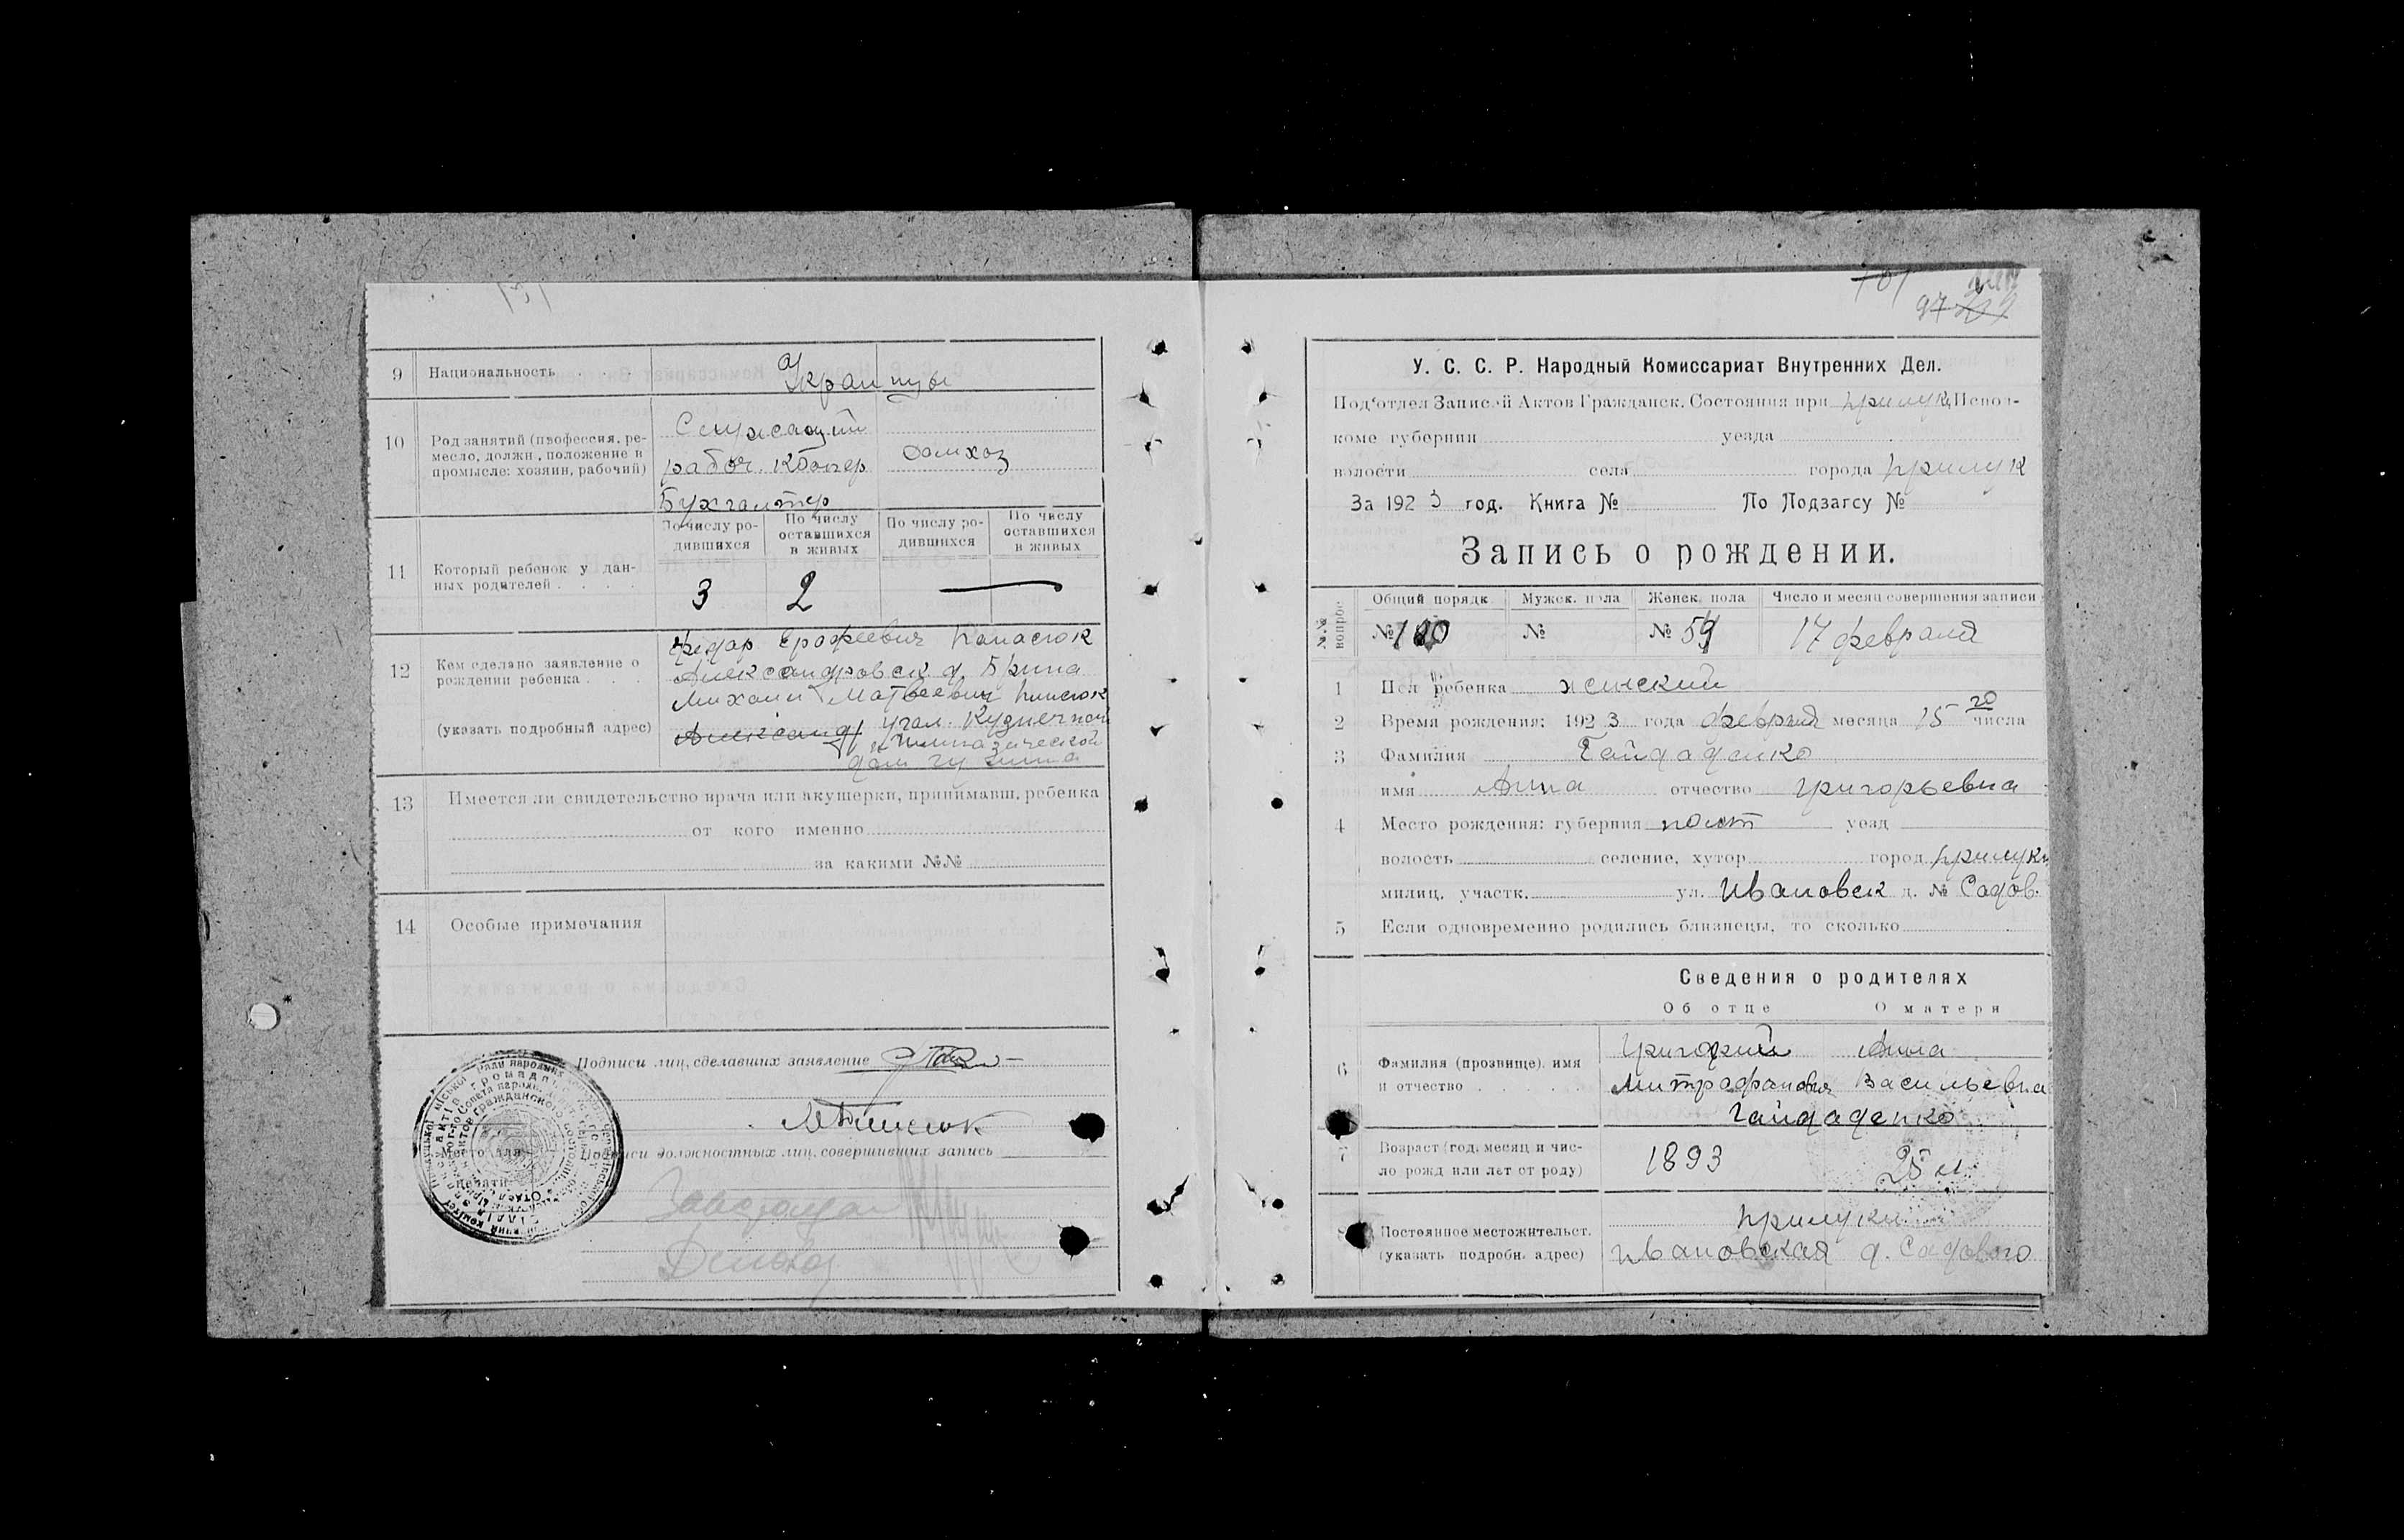 131
9 Национальность
Украинцы
10 Род занятий (профессия, ре-
месло, должн., положение в
промысле: хозяин, рабочий)
Служащий
рабоч. Коопер
Бухгалтер
домхоз
По числу ро-
дившихся
По числу
оставшихся
в живых
По числу ро-
дившихся
По числу
оставшихся
в живых
11 Который ребенок у дан-
ных родителей
3 2 —
12 Кем сделано заявление о
рождении ребенка
(указать подробный адрес)
Федор Ерофеевич Панасюк
Александровск д. Брина
Михаил Матвеевич
угол. Кузнечной
и Гимназической
дом
13 Имеется ли свидетельство врача или акушерки, принимавш. ребенка
от кого именно
за какими №№
14 Особые примечания
Подписи лиц, сделавших заявление
Место для
печати
Подписи должностных лиц, совершивших запись
101
97
У. С. С. Р. Народный Комиссариат Внутренних Дел.
Под'отдел Записей Актов Гражданск. Состояния при Прилуц Испол-
коме губернии уезда
волости села города Прилук
За 1923 год. Книга № По Подзагсу №
Запись о рождении.
№№ вопрос. Общий порядк Мужск. пола Женск. пола Число и месяц совершения записи
№ 100 № № 59 17 февраля
1 Пол ребенка женский
2 Время рождения: 1923 года февраля месяца 15 го числа
3 Фамилия Гайдаденко
имя Анна отчество Григорьевна
4 Место рождения: губерния полт уезд
волость селение, хутор город Прилуки
милиц. участк. ул. Ивановск д. № Садов.
5 Если одновременно родились близнецы, то сколько
Сведения о родителях
Об отце О матери
6 Фамилия (прозвище), имя
и отчество
Григорий Анна
Митрофанович Васильевна
Гайдаденко
7 Возраст (год, месяц и чис-
ло рожд или лет от роду)
1893 25 л
8 Постоянное местожительст.
(указать подробн. адрес)
Прилуки
Ивановская д. Садового